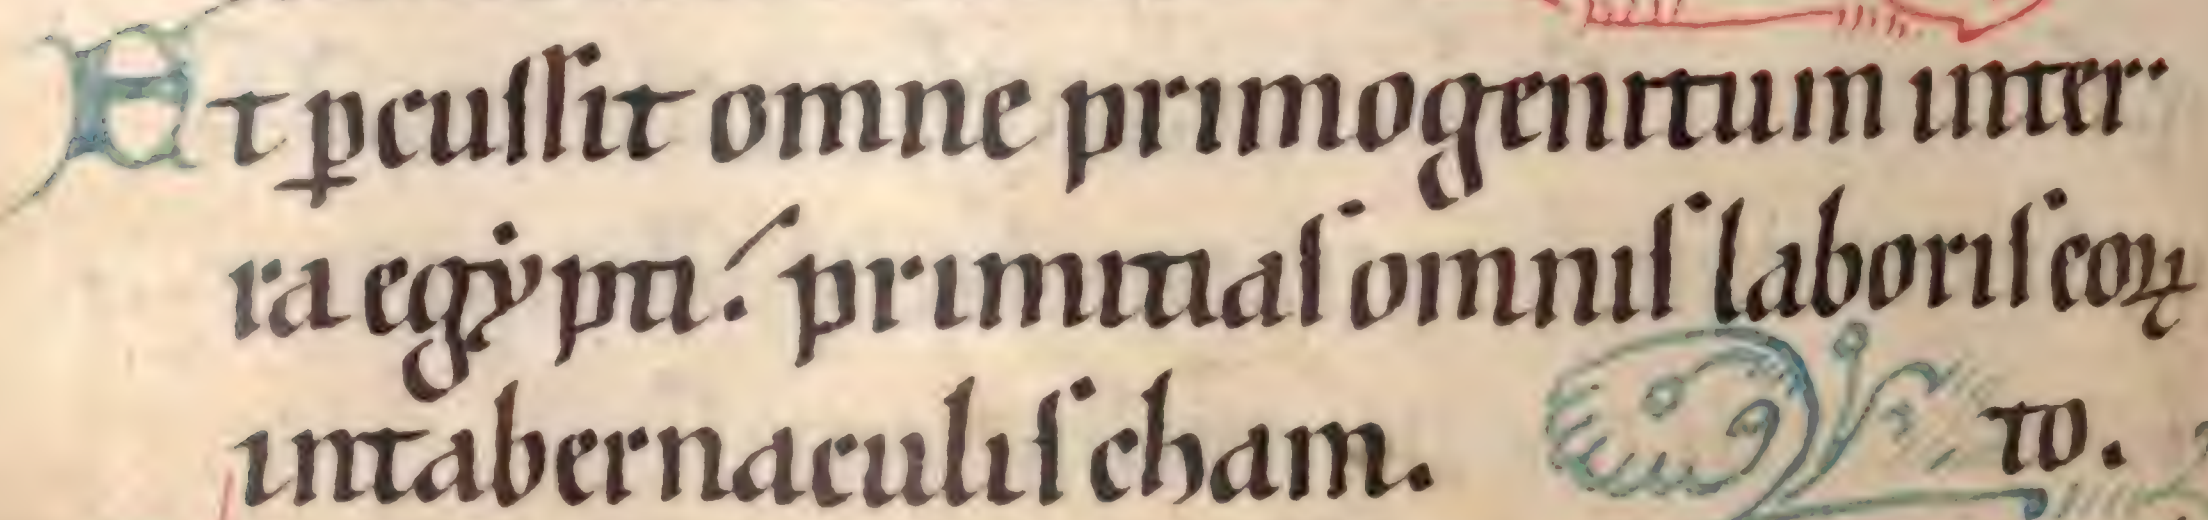 Et ꝑcuſſit omne primogenitum inter-
ra egẏpti. primitiaſ omniſ laboriſ eoꝝ
intabernaculiſ cham. to.